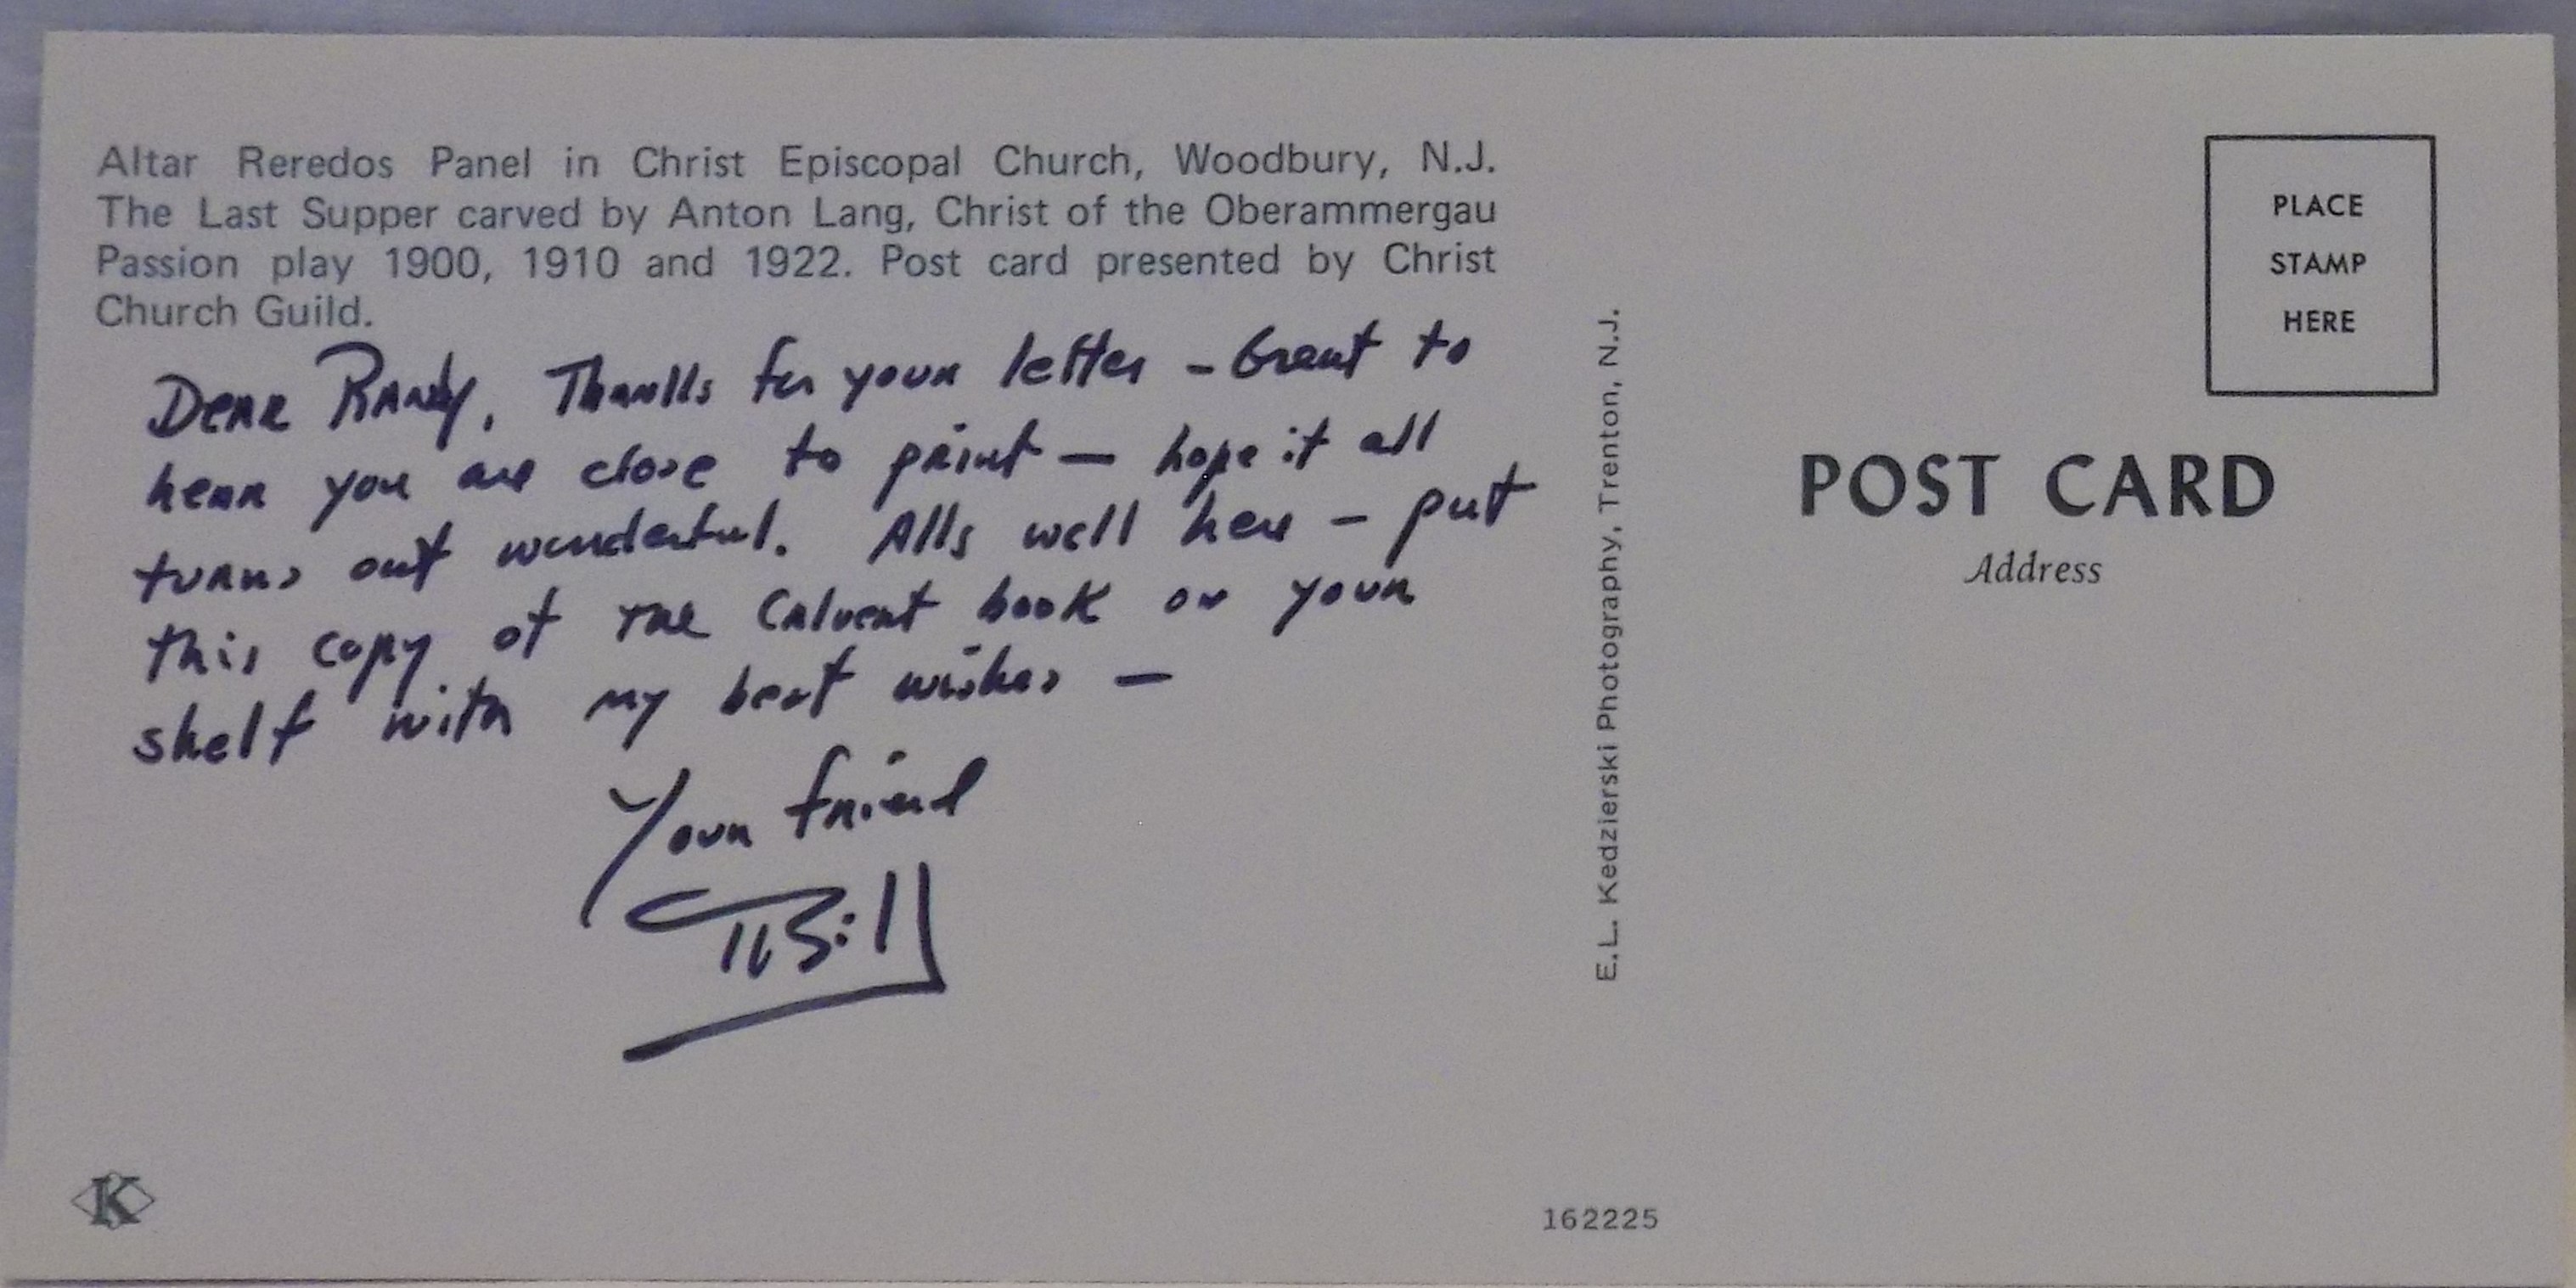 Altar Reredos Panel in Christ Episcopal Church, Woodbury, N.J.
The Last Supper carved by Anton Lang, Christ of the Oberammergau
Passion play 1900, 1910 and 1922. Post card presented by Christ
Church Guild.
Dear Randy, Thanks for your letter - Great to
hear you are close to print — hope it all
turns out wonderful. Alls well here - put
this copy of the Calvert book on your
shelf with my best wishes —
Your friend
Bill
K
E.L. Kedzierski Photography, Trenton, N.J.
162225
PLACE
STAMP
HERE
POST CARD
Address